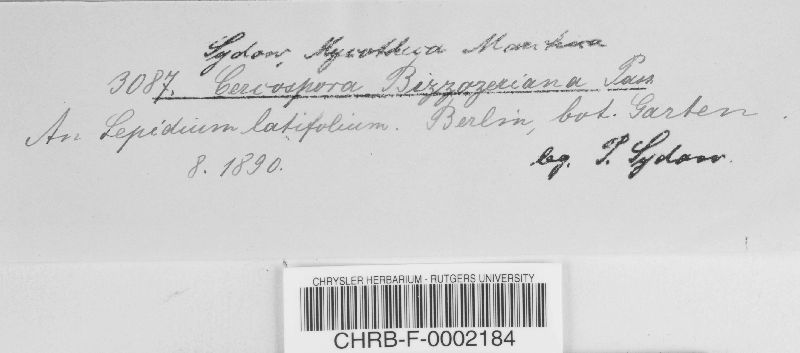 Sydow, Mycotheca Marchica
3087. Cercospora Bizzozeriana Pass
An Lepidium latifolium. Berlin, bot. Garten.
8. 1890.
leg. P. Sydow.
CHRYSLER HERBARIUM - RUTGERS UNIVERSITY
CHRB-F-0002184